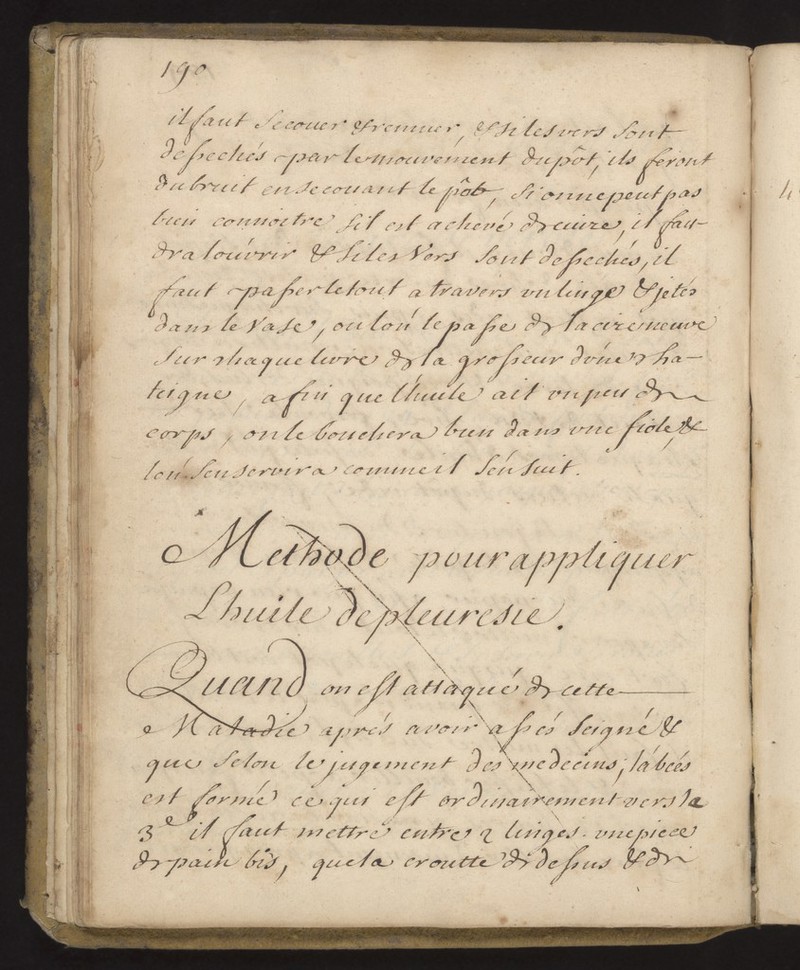 190
il faut secouer & remuer, & si les vers sont
dessechés par le mouvement du pôt, ils feront
du bruit en secouant le pôt, si on ne peut pas
bien connoitre s'il est achevé de cuire, il fau-
dra l'ouvrir & si les vers sont dessechés, il
faut passer le tout a travers un linge & jetés
dans le vase, ou lon le passe de la cire neuve
sur chaque livre de la grosseur d'úne cha-
teigne, afin que l'huile ait un peu de
corps, on le bouchera bien dans une fiole, &
lon s'en servira comme il s'énsuit.
Methode pour appliquer
L'huile de pleuresie.
Quand on est attaqué de cette
Maladie aprés avoir assés seigné &
que selon le jugement des medecins, l'abcés
est formé ce qui est ordinairement vers la
3e il faut mettre entre 2 linges une piece
de pain bis, que la croutte de dessus & de